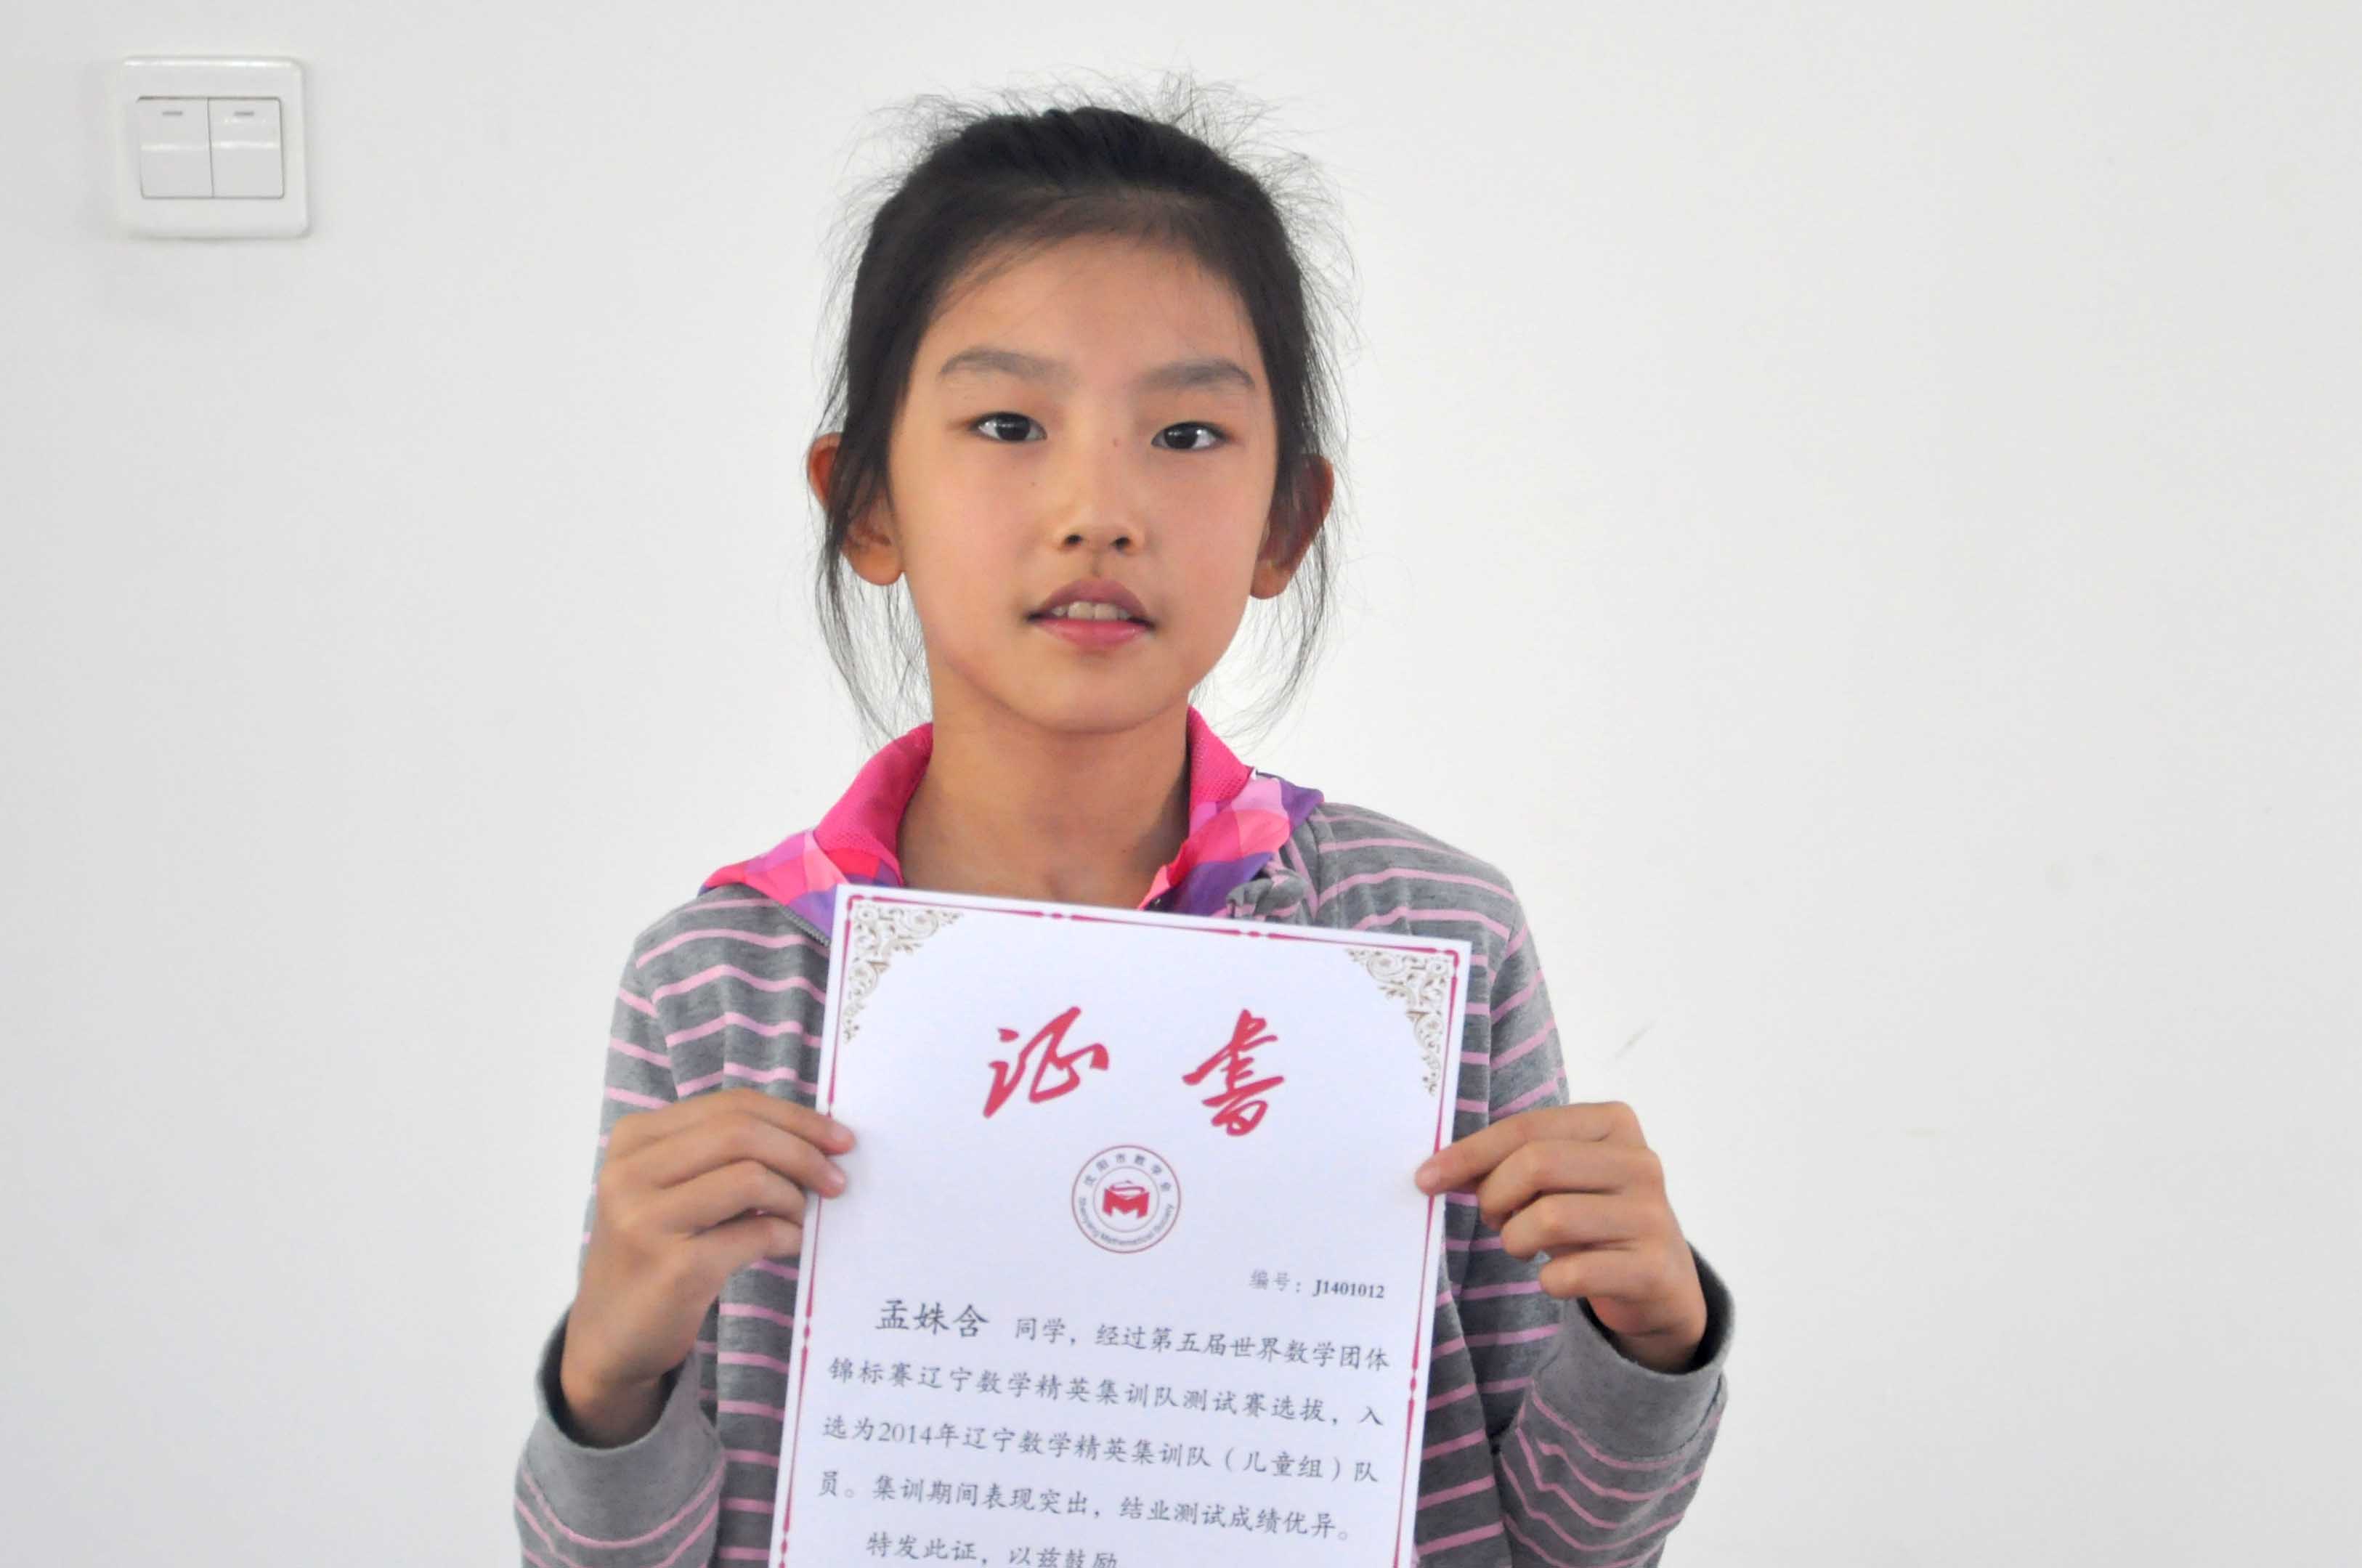 证书
沈阳市数学会
Shenyang Mathematical Society
编号：J1401012
孟姝含 同学，经过第五届世界数学团体
锦标赛辽宁数学精英集训队测试赛选拔，入
选为2014年辽宁数学精英集训队（儿童组）队
员。集训期间表现突出，结业测试成绩优异。
特发此证，以兹鼓励